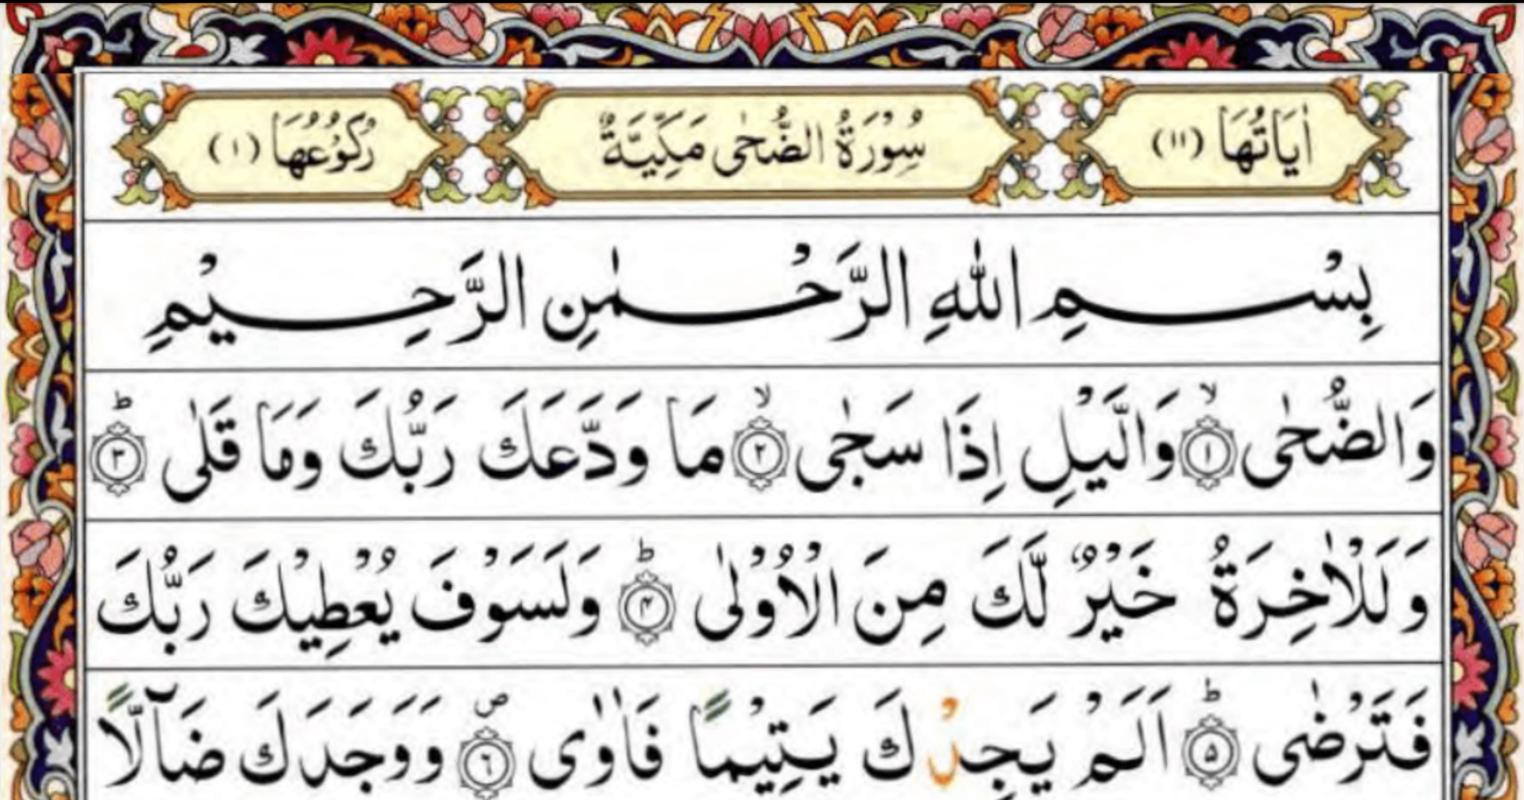 اٰيَاتُهَا (١١) سُوْرَةُ الضُّحٰى مَكِّيَّةٌ رُكُوْعُهَا (١)
بِسْمِ اللّٰهِ الرَّحْمٰنِ الرَّحِيْمِ
وَالضُّحٰى ۙ‏﴿۱﴾ وَالَّيْلِ اِذَا سَجٰى ۙ‏﴿۲﴾ مَا وَدَّعَكَ رَبُّكَ وَمَا قَلٰى ؕ‏﴿۳﴾
وَلَلْاٰخِرَةُ خَيْرٌ لَّكَ مِنَ الْاُوْلٰى ؕ‏﴿۴﴾ وَلَسَوْفَ يُعْطِيْكَ رَبُّكَ
فَتَرْضٰى ؕ‏﴿۵﴾ اَلَمْ يَجِدْكَ يَتِيْمًا فَاٰوٰى ۪‏﴿۶﴾ وَوَجَدَكَ ضَآلًّا